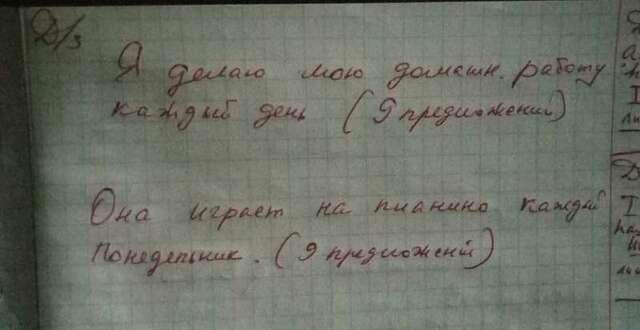 Д/з
Я делаю мою домашн. работу
каждый день (9 предложений)
Она играет на пианино каждый
понедельник. (9 предложений)